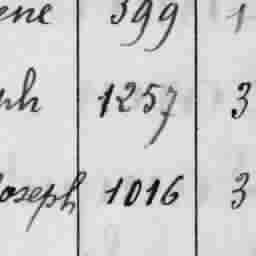 ene 399 1
ph 1257 3
Joseph 1016 3